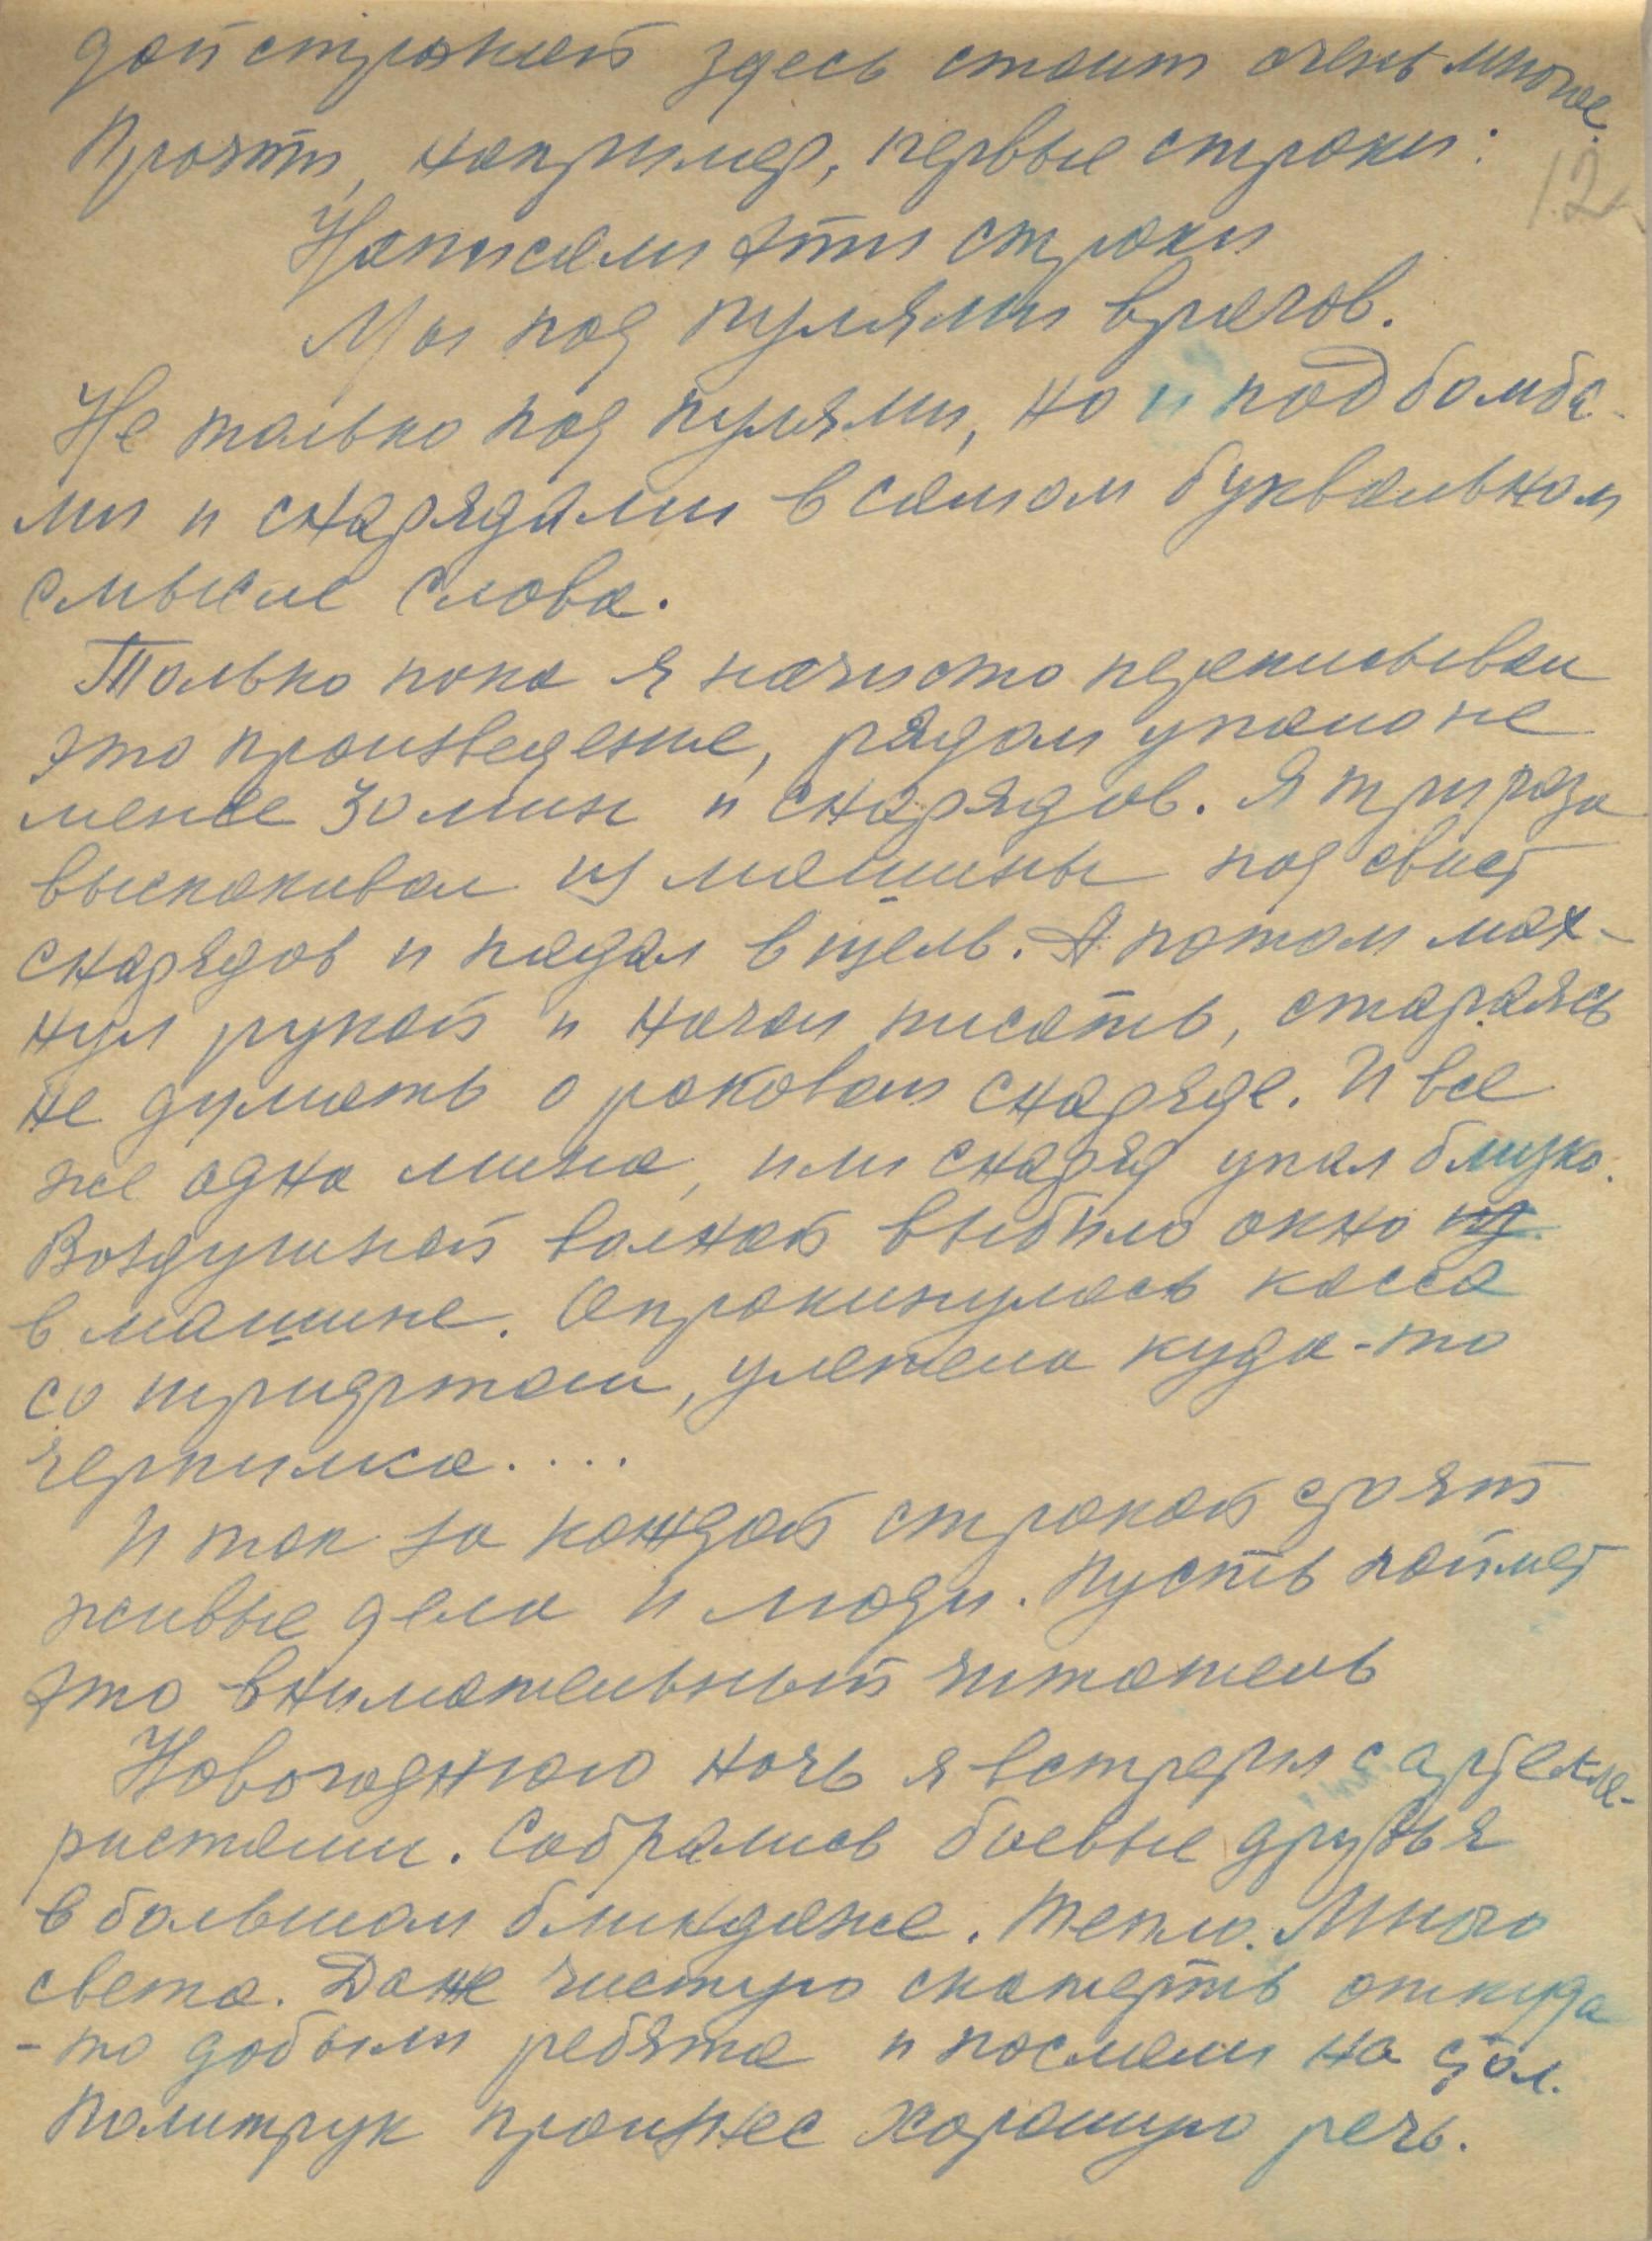 дой строкой здесь стоит очень многое.
Прочти, например, первые строки:
12
Написали эти строки
Мы под пулями врагов.
Не только под пулями, но и под бомба-
ми и снарядами в самом буквальном
смысле слова.
Только пока я начисто переписывал
это произведение, рядом упало не
менее 30 мин и снарядов. Я три раза
выскакивал из машины под свист
снарядов и падал в щель. А потом мах-
нул рукой и начал писать, стараясь
не думать о роковом снаряде. И все
же одна мина, или снаряд упал близко.
Воздушной волной выбило окно из
в машине. Опрокинулась касса
со шрифтом, улетела куда-то
чернилка....
И так за каждой строкой стоят
живые дела и люди. Пусть поймет
это внимательный читатель
Новогоднюю ночь я встретил с артилле-
ристами. Собрались боевые друзья
в большом блиндаже. Тепло. Много
света. Даже чистую скатерть откуда
-то добыли ребята и послали на стол.
Политрук произнес хорошую речь.